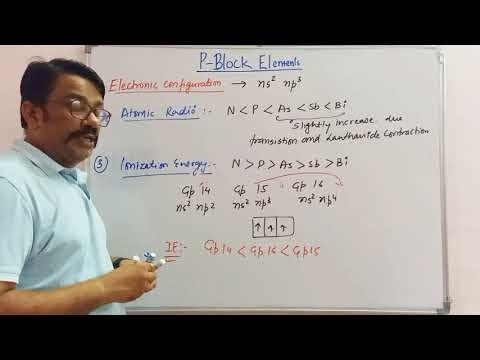 P-Block Elements
Electronic configuration → ns² np³
Atomic Radii :- N < P < As < Sb < Bi
Slightly increase due
transistion and Lanthanide contraction
③ Ionization Energy:- N > P > As > Sb > Bi
Gp 14 Gp 15 Gp 16
ns² np² ns² np³ ns² np⁴
↑ ↑ ↑
IE:- Gp 14 < Gp 16 < Gp 15